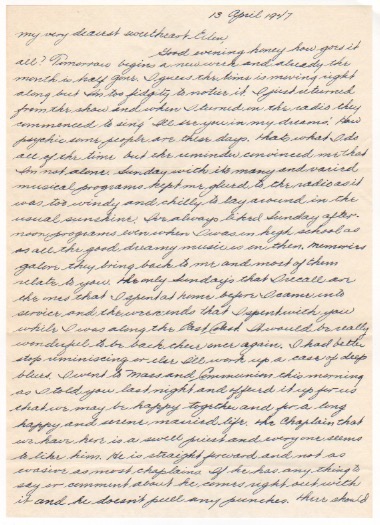 13 April 1947
my very dearest sweetheart Eileen,
Good evening honey how goes it
all? Tomorrow begins a new week and already the
month is half gone. I guess the time is moving right
along but I'm too fidgity to notice it. I just returned
from the show and when I turned on the radio they
commenced to sing "I'll see you in my dreams". How
psychic some people are these days. That's what I do
all of the time but the reminder convinced me that
I'm not alone. Sunday with its many and varied
musical programs kept me glued to the radio as it
was too windy and chilly to lay around in the
usual sunshine. I've always liked Sunday after-
noon programs even when I was in high school as
as all the good dreamy music is on then. Memories
galore they bring back to me and most of them
relate to you. The only Sundays that I recall are
the ones that I spent at home before I came into
service and the weekends that I spent with you
while I was along the East Coast. It would be really
wonderful to be back there once again. I had better
stop reminiscing or else I'll work up a case of deep
blues. I went to Mass and Communion this morning
as I told you last night and offered it up for us
that we may be happy together and for a long
happy and serene married life. The Chaplain that
we have here is a swell priest and everyone seems
to like him. He is straight forward and not as
evasive as most chaplains. If he has any thing to
say or comment about he comes right out with
it and he doesn't pull any punches. There should